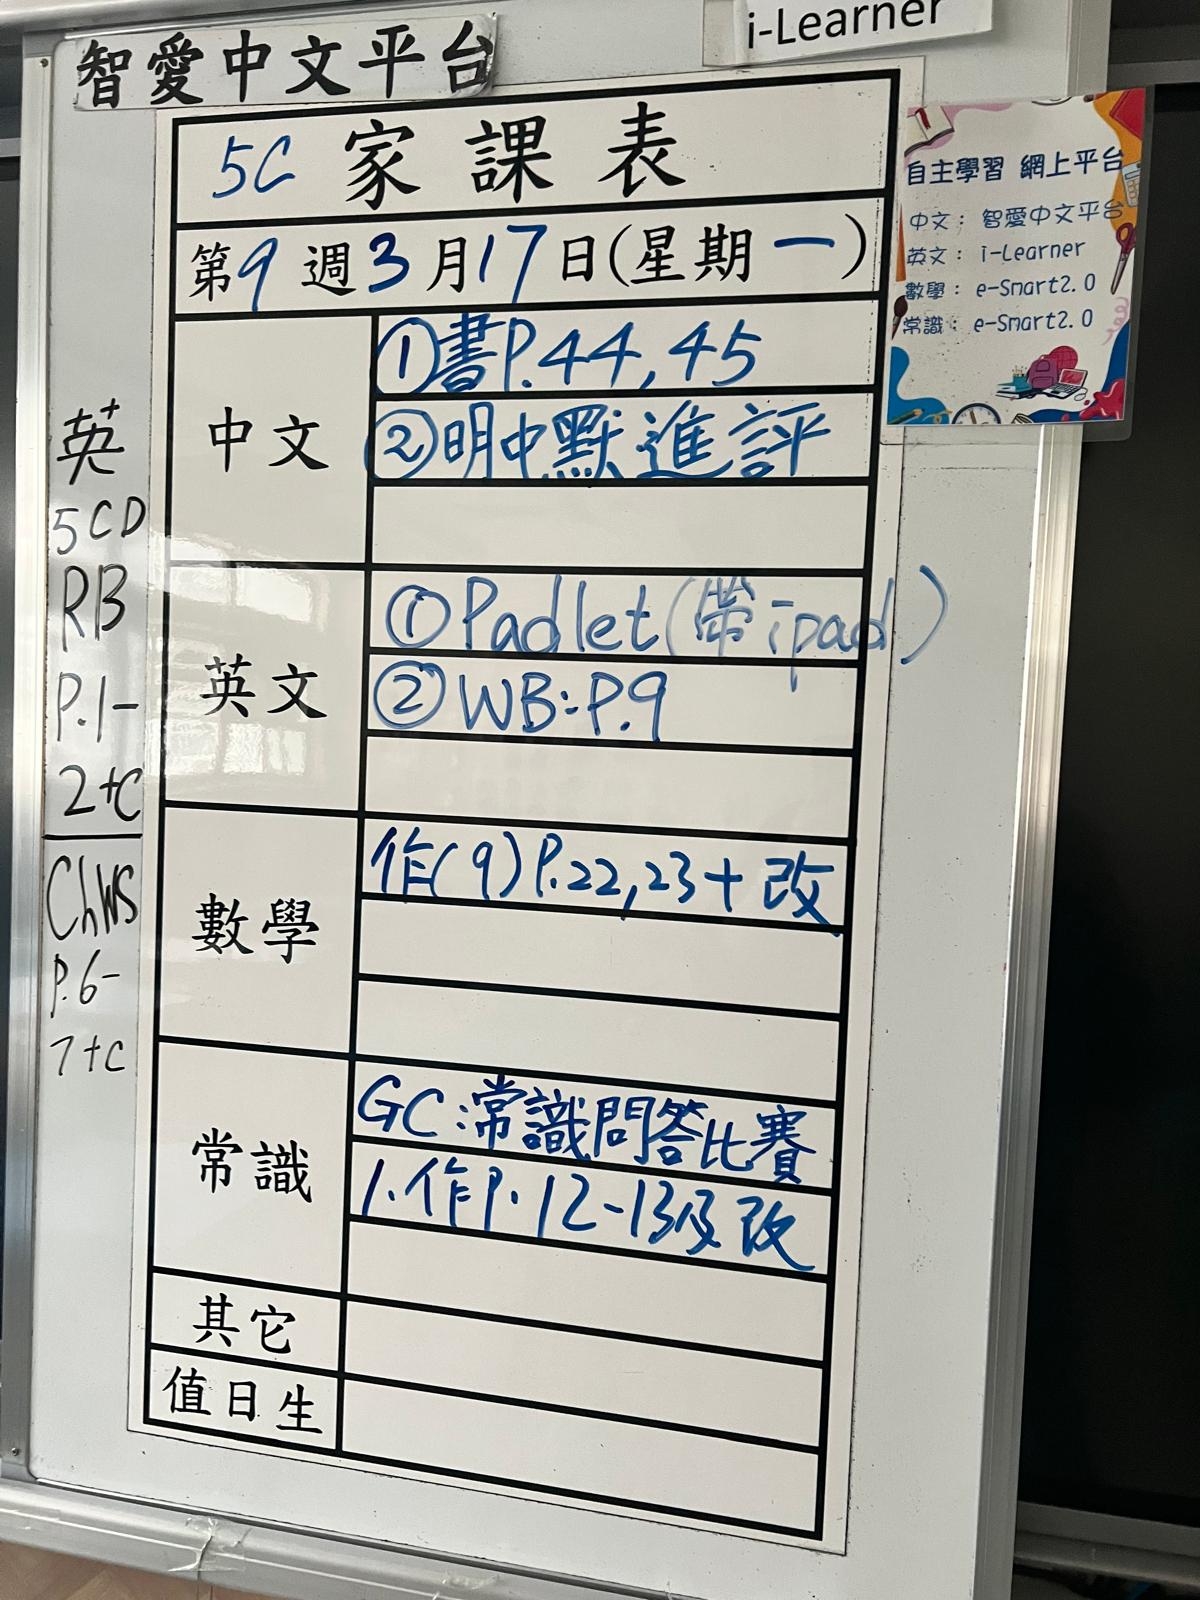 智愛中文平台
i-Learner
5C 家課表
第9週3月17日(星期一)
中文
①書P.44,45
②明中默進評
英文
①Padlet(帶ipad)
②WB:P.9
數學
作(9)P.22,23+改
常識
GC:常識問答比賽
1.作P.12-13及改
其它
值日生
英
5CD
RB
P.1-
2+C
ChWS
P.6-
7+C
自主學習 網上平台
中文: 智愛中文平台
英文: i-Learner
數學: e-Smart2.0
常識: e-Smart2.0